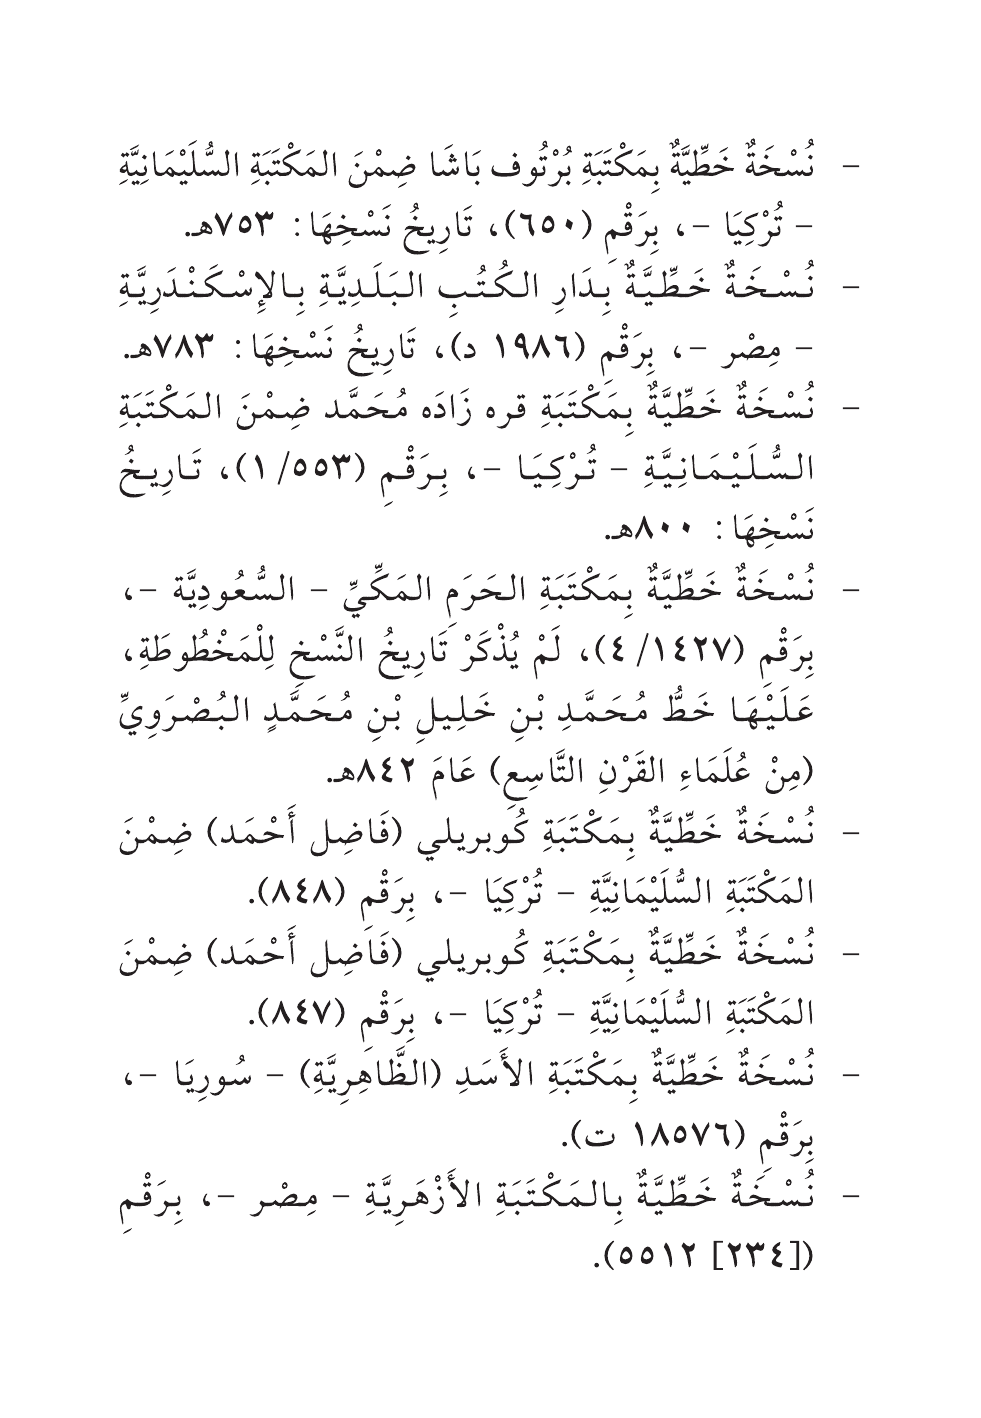 - نُسْخَةٌ خَطِّيَّةٌ بِمَكْتَبَةِ بُرْتُوف بَاشَا ضِمْنَ المَكْتَبَةِ السُّلَيْمَانِيَّةِ
- تُرْكِيَا -، بِرَقْمِ (٦٥٠)، تَارِيخُ نَسْخِهَا: ٧٥٣هـ.
- نُسْخَةٌ خَطِّيَّةٌ بِدَارِ الكُتُبِ البَلَدِيَّةِ بِالإِسْكَنْدَرِيَّةِ
- مِصْر -، بِرَقْمِ (١٩٨٦ د)، تَارِيخُ نَسْخِهَا: ٧٨٣هـ.
- نُسْخَةٌ خَطِّيَّةٌ بِمَكْتَبَةِ قره زَادَه مُحَمَّد ضِمْنَ المَكْتَبَةِ
السُّلَيْمَانِيَّةِ - تُرْكِيَا -، بِرَقْمِ (٥٥٣/ ١)، تَارِيخُ
نَسْخِهَا: ٨٠٠هـ.
- نُسْخَةٌ خَطِّيَّةٌ بِمَكْتَبَةِ الحَرَمِ المَكِّيِّ - السُّعُودِيَّة -،
بِرَقْمِ (١٤٢٧/ ٤)، لَمْ يُذْكَرْ تَارِيخُ النَّسْخِ لِلْمَخْطُوطَةِ،
عَلَيْهَا خَطُّ مُحَمَّدِ بْنِ خَلِيلِ بْنِ مُحَمَّدٍ البُصْرَوِيِّ
(مِنْ عُلَمَاءِ القَرْنِ التَّاسِعِ) عَامَ ٨٤٢هـ.
- نُسْخَةٌ خَطِّيَّةٌ بِمَكْتَبَةِ كُوبريلي (فَاضِل أَحْمَد) ضِمْنَ
المَكْتَبَةِ السُّلَيْمَانِيَّةِ - تُرْكِيَا -، بِرَقْمِ (٨٤٨).
- نُسْخَةٌ خَطِّيَّةٌ بِمَكْتَبَةِ كُوبريلي (فَاضِل أَحْمَد) ضِمْنَ
المَكْتَبَةِ السُّلَيْمَانِيَّةِ - تُرْكِيَا -، بِرَقْمِ (٨٤٧).
- نُسْخَةٌ خَطِّيَّةٌ بِمَكْتَبَةِ الأَسَدِ (الظَّاهِرِيَّةِ) - سُورِيَا -،
بِرَقْمِ (١٨٥٧٦ ت).
- نُسْخَةٌ خَطِّيَّةٌ بِالمَكْتَبَةِ الأَزْهَرِيَّةِ - مِصْر -، بِرَقْمِ
([٢٣٤] ٥٥١٢).